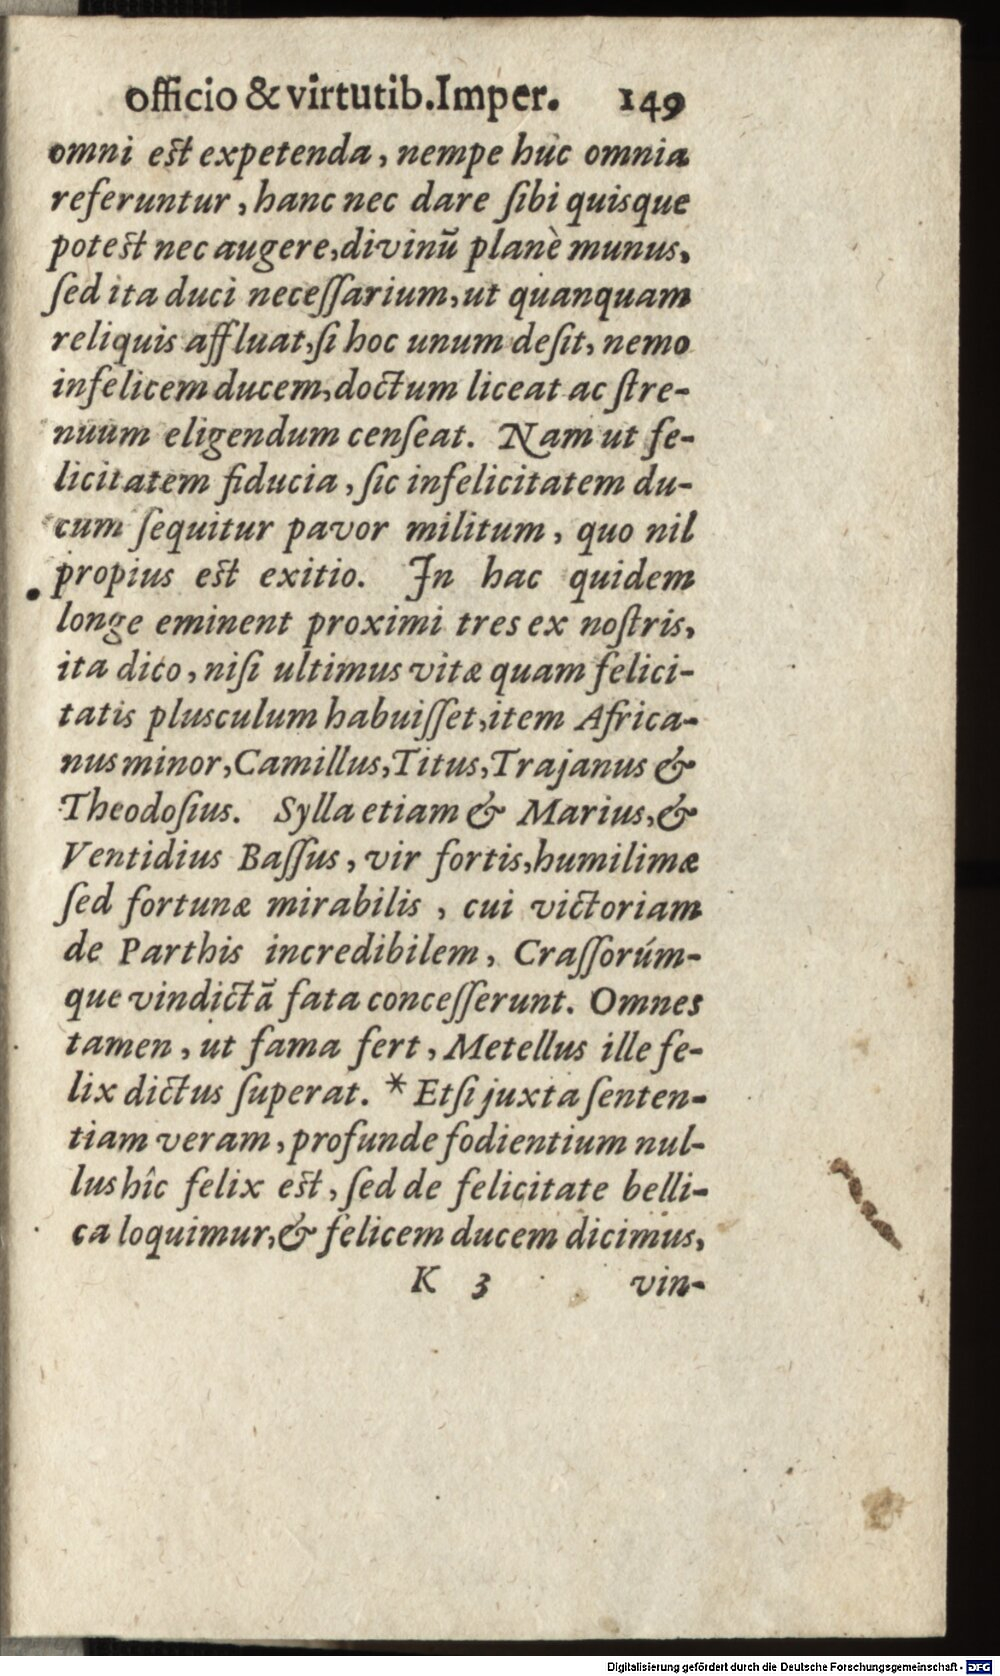 officio & virtutib. Imper. 149
omni est expetenda, nempe huc omnia
referuntur, hanc nec dare ſibi quisque
potest nec augere, divinū planè munus,
ſed ita duci neceſſarium, ut quanquam
reliquis affluat, ſi hoc unum deſit, nemo
infelicem ducem, doctum liceat ac ſtre-
nuum eligendum cenſeat. Nam ut fe-
licitatem fiducia, ſic infelicitatem du-
cum ſequitur pavor militum, quo nil
propius est exitio. In hac quidem
longe eminent proximi tres ex noſtris,
ita dico, niſi ultimus vitæ quam felici-
tatis plusculum habuiſſet, item Africa-
nus minor, Camillus, Titus, Trajanus &
Theodoſius. Sylla etiam & Marius, &
Ventidius Baſſus, vir fortis, humilimæ
ſed fortunæ mirabilis, cui victoriam
de Parthis incredibilem, Craſſorúm-
que vindictā fata conceſſerunt. Omnes
tamen, ut fama fert, Metellus ille fe-
lix dictus ſuperat. * Etſi juxta ſenten-
tiam veram, profunde fodientium nul-
lus hîc felix est, ſed de felicitate belli-
ca loquimur, & felicem ducem dicimus,
K 3 vin-
Digitalisierung gefördert durch die Deutsche Forschungsgemeinschaft - DFG